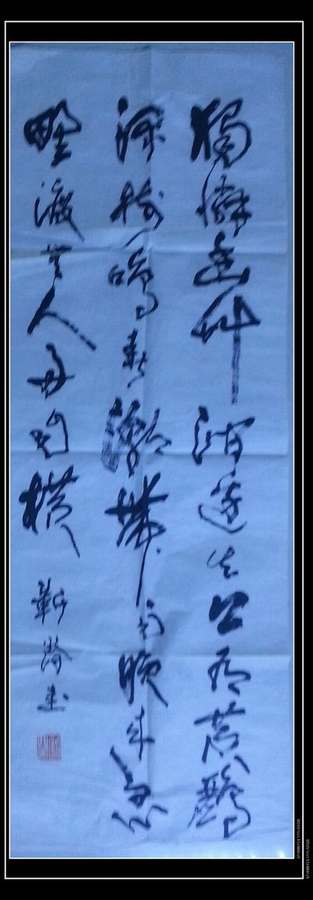 獨憐幽艸澗邊生上有黃鸝
深樹鳴春潮帶雨晚來急
野渡無人舟自橫